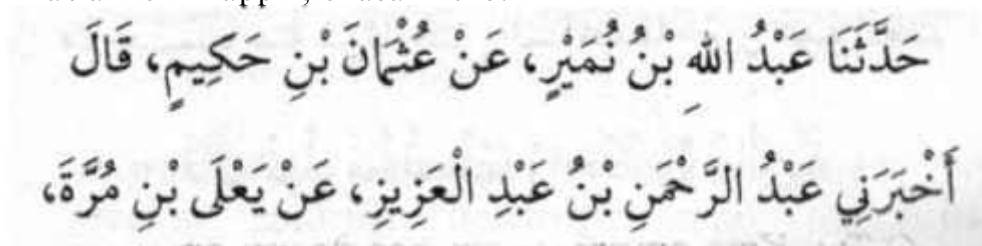 حَدَّثَنَا عَبْدُ اللهِ بْنُ نُمَيْرٍ، عَنْ عُثْمَانَ بْنِ حَكِيمٍ، قَالَ
أَخْبَرَنِي عَبْدُ الرَّحْمَنِ بْنُ عَبْدِ الْعَزِيزِ، عَنْ يَعْلَى بْنِ مُرَّةَ،